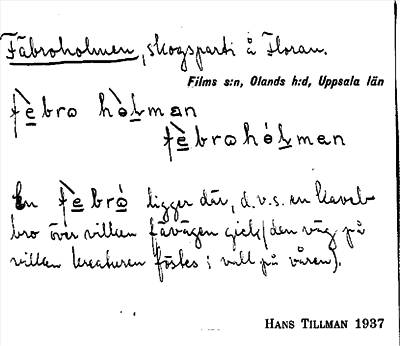 Fäbroholmen, skogsparti å Floran.
Films s:n, Olands h:d, Uppsala län
fèbro hòlman
fèbrohólmen
En fèbró ligger där, d.v.s. en kavel-
bro över vilken fävägen gick (den väg på
vilken kreaturen föstes i vall på våren).
HANS TILLMAN 1937